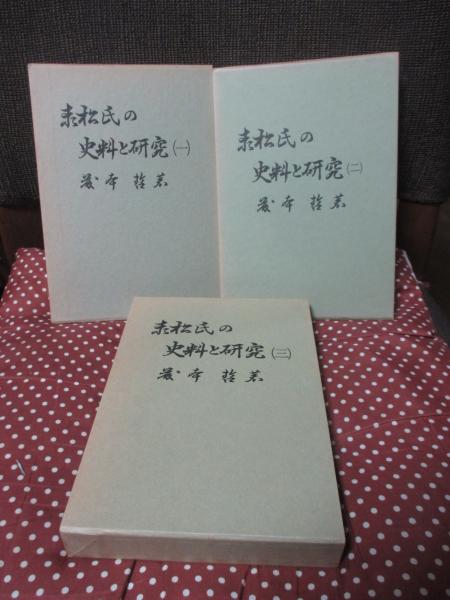 赤松氏の
史料と研究(一)
藤本 哲著
赤松氏の
史料と研究(二)
藤本 哲著
赤松氏の
史料と研究(三)
藤本 哲著